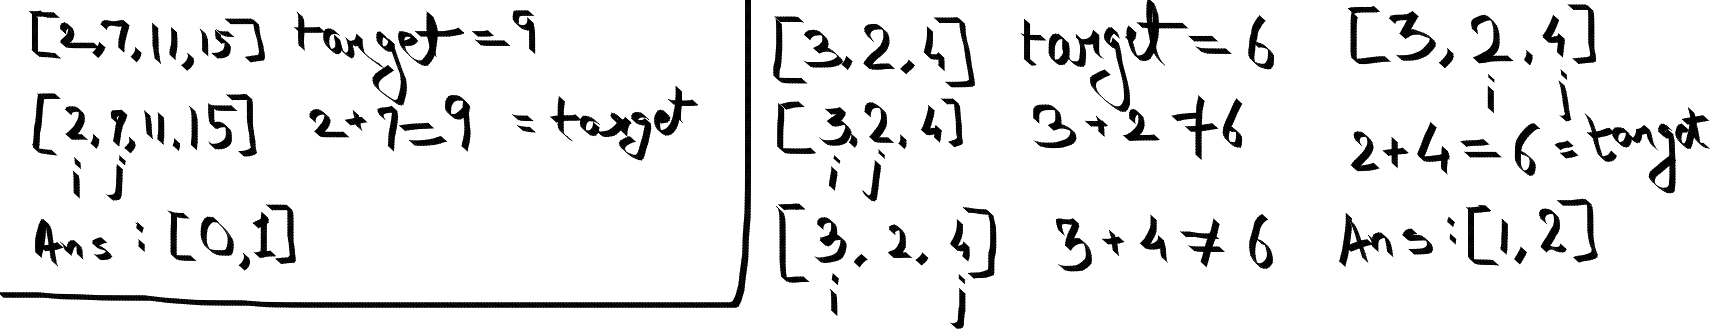 [2,7,11,15] target = 9
[2,7,11,15] 2+7=9 = target
i j
Ans : [0,1]
[3,2,4] target = 6
[3,2,4] 3+2 ≠ 6
i j
[3,2,4] 3+4 ≠ 6
i j
[3,2,4]
i j
2+4=6=target
Ans : [1,2]